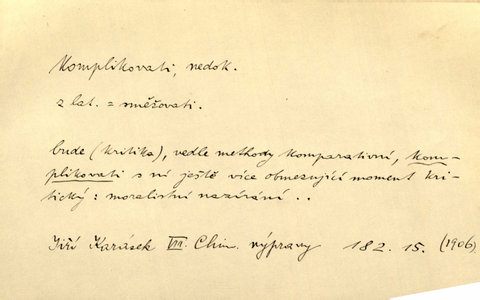 Komplikovati, nedok.
z lat. = směšovati.
bude (kritika), vedle methody komparativní, kom-
plikovati s ní ještě více obmezující moment kri-
tický: moralistní nazírání ..
Jiří Karásek Chim. výpravy 182. 15. (1906)